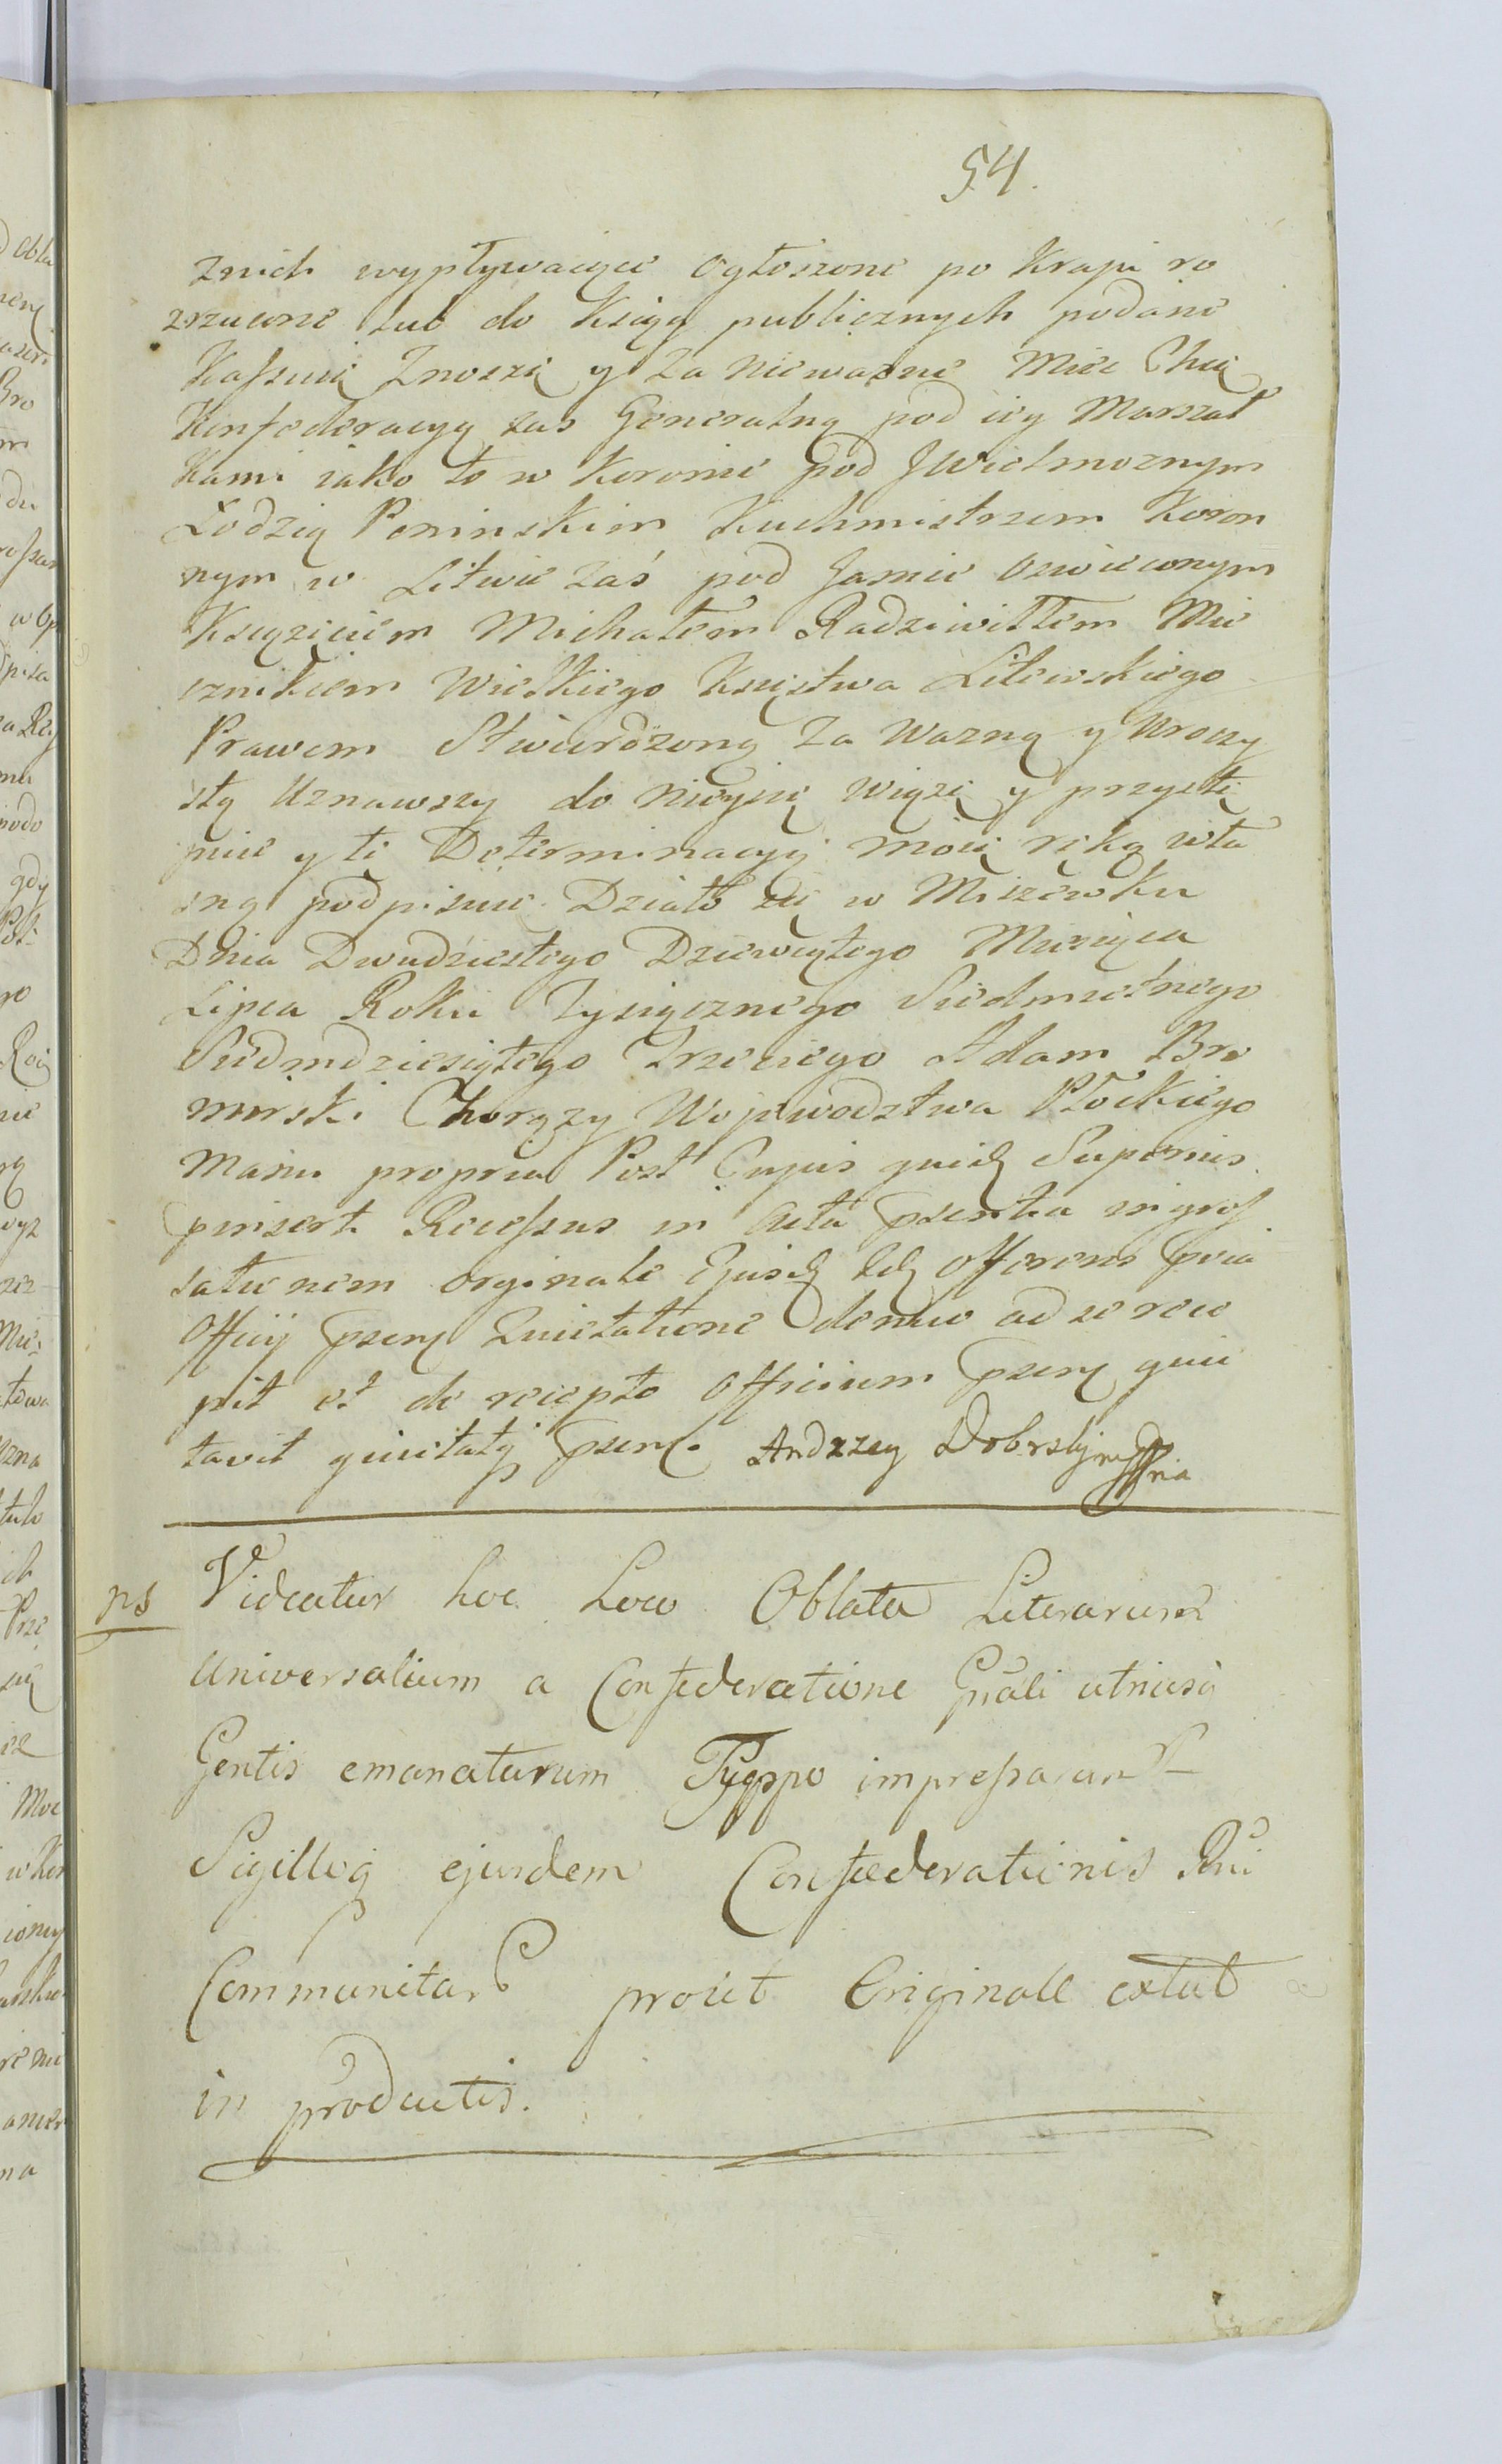 54.
znich wypływaiące ogłoszone po kraju ro
zrzucone lub do Ksiąg publicznych podane
Kassuię Znoszę y Za nieważne Mieć Chcę
Konfederacyą zas Generalną pod iey Marszał
kami iako to w koronie pod JWielmoznym
Łodzią Poninskim Kuchmistrzem koron
nym w Litwie Zaś pod Jasnie oswieconym
Ksiązęciem Michałem Radziwiłłem Mie
cznikiem Wielkiego Xsięstwa Litewskiego
Prawem Stwierdzoną Za Wazną y Uroczy
stą Uznawszy do nieyże się Wiąże y przystę
puie y te Determinacyą moią ręką wła
sną podpisuie Działo się w Miszewku
Dnia Dwudziestego Dziewiątego Miesiąca
Lipca Roku Tysiącznego Siedmsetnego
Siedmdziesiątego Trzeciego Adam Bro
mirski Chorązy Wojewodztwa Płockiego
Manu propria Post Cujus quid Superius
pinsert Recessus in Acta psentia ingros
sationem orginale Ejusd Idq Offerens pvia
Officij psen Quietatione denuo ad se rece
pit et de recepto officium psen quie
tavit quietatq psen. Andrzey Dobrski mppria
ps Videatur hoc Loco Oblata Literarum
Universalium a Confederatione Gnali utriusq
Gentis emanatarum Typpo impressarum
Sigilloq ejusdem Confœderationis Rni
Communitar prout Originale extat
in productis.